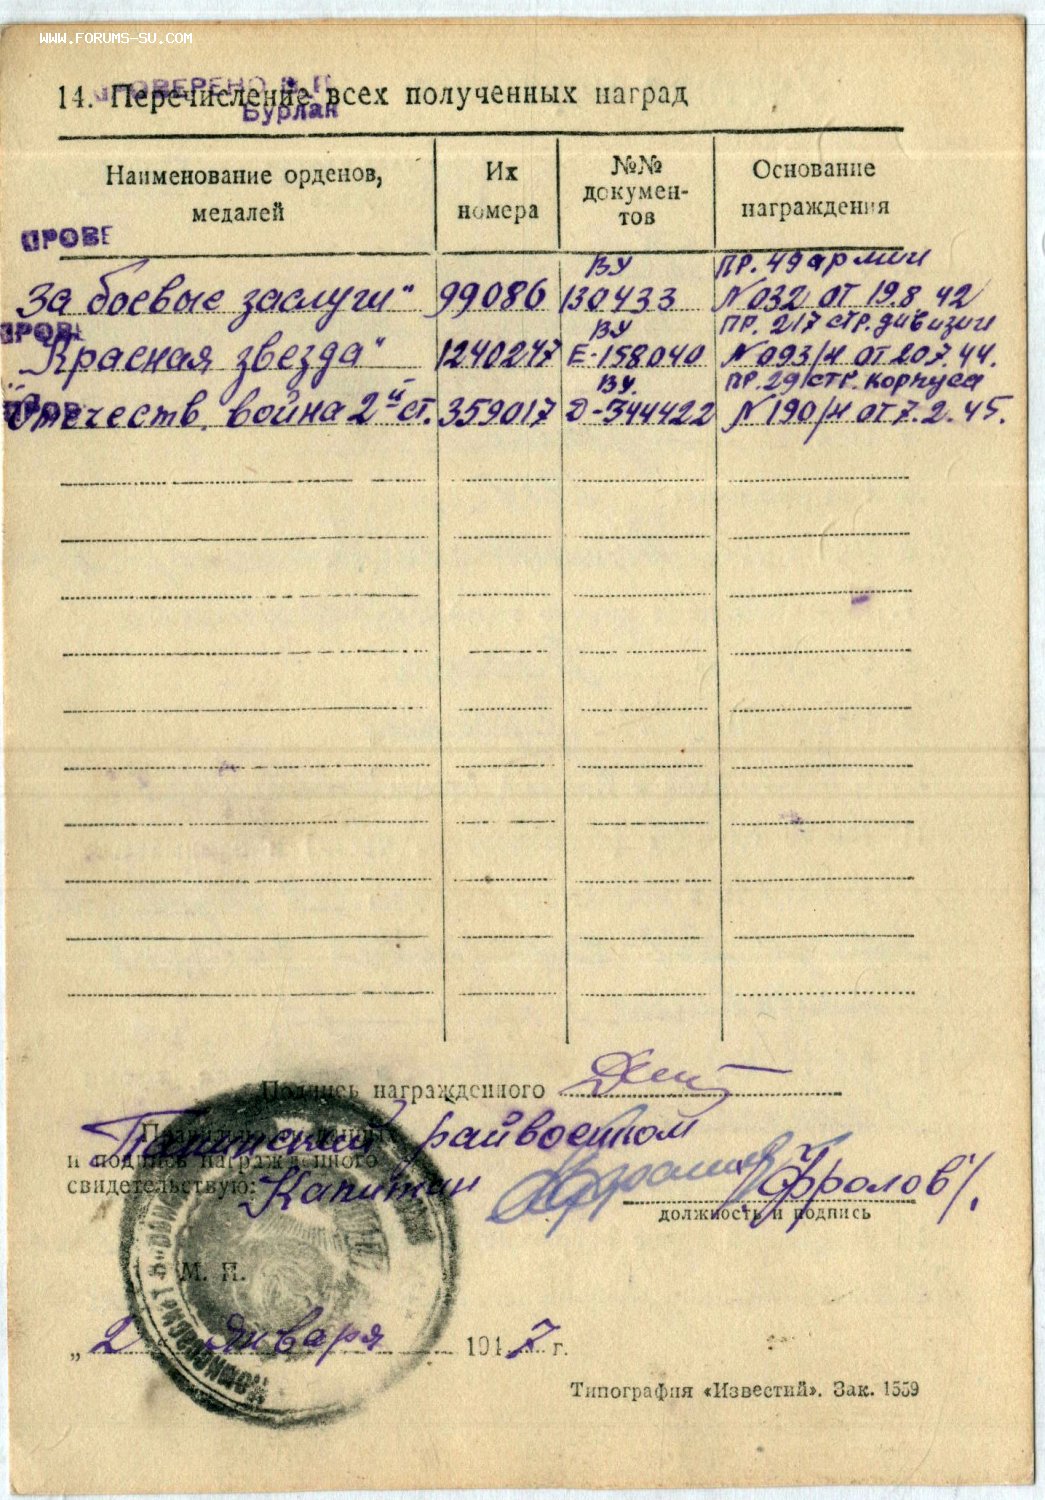 WWW.FORUMS-SU.COM
ПРОВЕРЕНО
Бурлак
14. Перечисление всех полученных наград
Наименование орденов, медалей
Их номера
№№ документов
Основание награждения
ПРОВЕ
ВУ
ПР. 49 армии
За боевые заслуги" 99086 130433 N 032 от 19.8 42
ПРОВЕ
ВУ
ПР. 217 стр. дивизии
"Красная звезда" 1240247 Е-158040 N 093/н от 20.7.44.
ВУ.
ПР. 29 стр. корпуса
ПРОВ
"Отечеств. война 2й ст. 359017 Д-344422 N 190/н от 7.2.45.
Подпись награжденного
райвоенком
и подпись награжденного
свидетельствую:
Капитан
"Фролов"/.
должность и подпись
М. П.
„2" Января 1947 г.
Типография «Известий». Зак. 1559